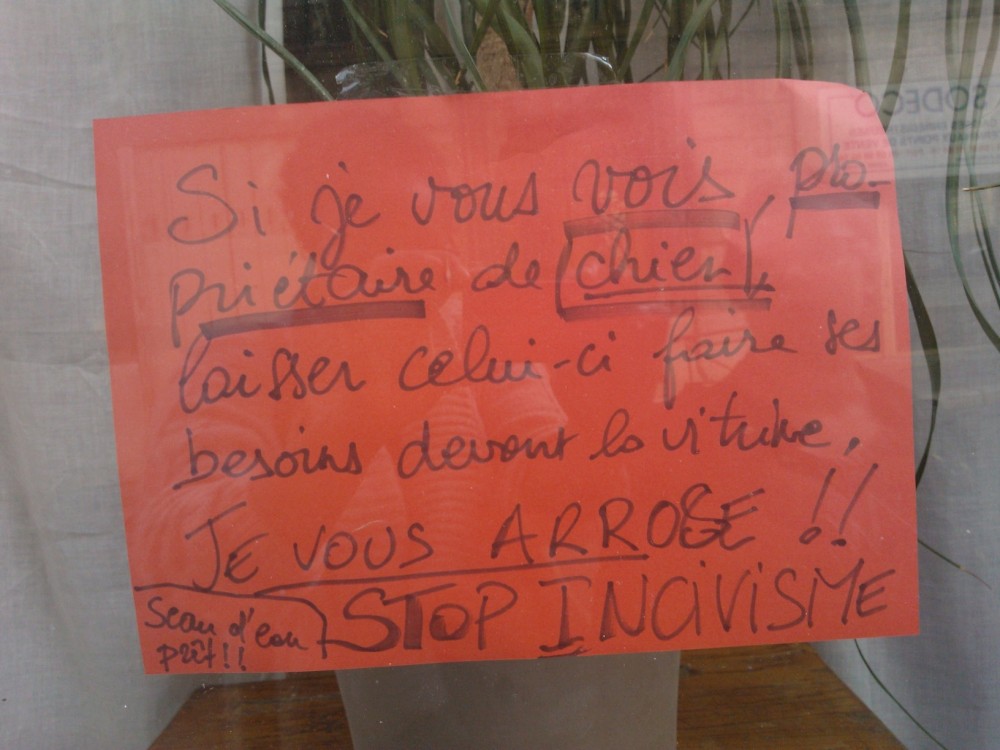 Si je vous vois, pro-
priétaire de (chien),
laisser celui-ci faire ses
besoins devant la vitrine,
JE VOUS ARROSE !!
STOP INCIVISME
Seau d'eau
prêt!!
SODECO